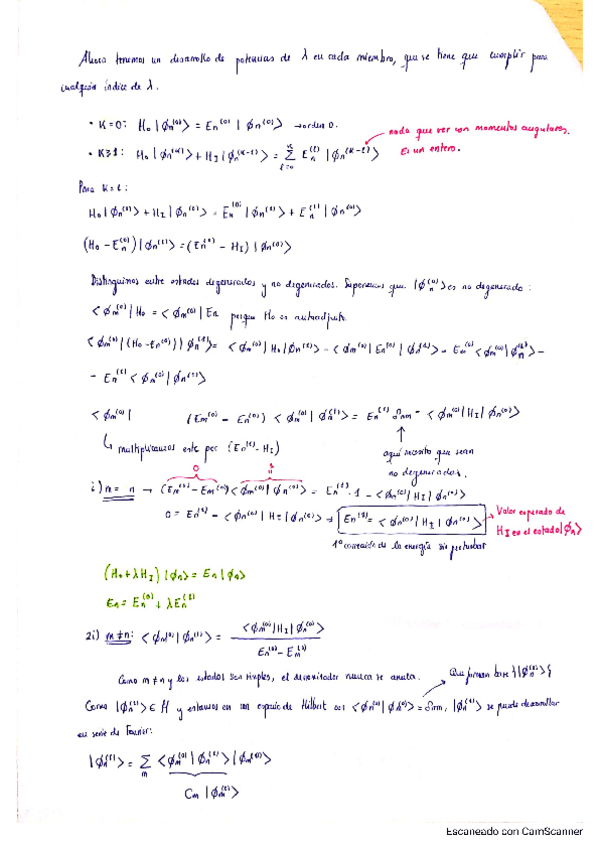 Ahora tenemos un desarrollo de potencias de λ en cada miembro, que se tiene que cumplir para
cualquier índice de λ.
• K=0: H₀|ϕn⁽⁰⁾> = En⁽⁰⁾|ϕn⁽⁰⁾> → orden 0.
nada que ver con momentos angulares.
Es un entero.
• K≥1: H₀|ϕn⁽ᴷ⁾> + H_I|ϕn⁽ᴷ⁻¹⁾> = Σ_{l=0}^{K} En⁽ˡ⁾|ϕn⁽ᴷ⁻ˡ⁾>
Para K=1:
H₀|ϕn⁽¹⁾> + H_I|ϕn⁽⁰⁾> = En⁽⁰⁾|ϕn⁽¹⁾> + En⁽¹⁾|ϕn⁽⁰⁾>
(H₀ - En⁽⁰⁾)|ϕn⁽¹⁾> = (En⁽¹⁾ - H_I)|ϕn⁽⁰⁾>
Distinguimos entre estados degenerados y no degenerados. Suponemos que |ϕn⁽⁰⁾> es no degenerado:
<ϕm⁽⁰⁾|H₀ = <ϕm⁽⁰⁾|En porque H₀ es autoadjunto
<ϕm⁽⁰⁾|(H₀ - En⁽⁰⁾)|ϕn⁽¹⁾> = <ϕm⁽⁰⁾|H₀|ϕn⁽¹⁾> - <ϕm⁽⁰⁾|En⁽⁰⁾|ϕn⁽¹⁾> = Em⁽⁰⁾<ϕm⁽⁰⁾|ϕn⁽¹⁾> -
- En⁽¹⁾<ϕm⁽⁰⁾|ϕn⁽¹⁾>
<ϕm⁽⁰⁾| (Em⁽⁰⁾ - En⁽⁰⁾)<ϕm⁽⁰⁾|ϕn⁽¹⁾> = En⁽¹⁾ δnm - <ϕm⁽⁰⁾|H_I|ϕn⁽⁰⁾>
↳ multiplicamos este por (En⁽¹⁾ - H_I)
aquí necesito que sean
no degenerados.
i) m = n → (Em⁽⁰⁾ - Em⁽⁰⁾)<ϕm⁽⁰⁾|ϕn⁽⁰⁾> = En⁽¹⁾·1 - <ϕn⁽⁰⁾|H_I|ϕn⁽⁰⁾>
0 = En⁽¹⁾ - <ϕn⁽⁰⁾|H_I|ϕn⁽⁰⁾> → En⁽¹⁾ = <ϕn⁽⁰⁾|H_I|ϕn⁽⁰⁾>
Valor esperado de
H_I en el estado |ϕn>
1ª corrección de la energía sin perturbar
(H₀ + λH_I)|ϕn> = En|ϕn>
En = En⁽⁰⁾ + λEn⁽¹⁾
2i) m≠n: <ϕm⁽⁰⁾|ϕn⁽¹⁾> = <ϕm⁽⁰⁾|H_I|ϕn⁽⁰⁾> / En⁽⁰⁾ - Em⁽⁰⁾
Como m≠n y los estados son simples, el denominador nunca se anula.
Que forman base {|ϕn⁽⁰⁾>}
Como |ϕn⁽¹⁾> ∈ H y estamos en un espacio de Hilbert con <ϕn⁽⁰⁾|ϕm⁽⁰⁾> = δnm, |ϕn⁽¹⁾> se puede desarrollar
en serie de Fourier:
|ϕn⁽¹⁾> = Σ_m <ϕm⁽⁰⁾|ϕn⁽¹⁾>|ϕm⁽⁰⁾>
Cm |ϕm⁽⁰⁾>
Escaneado con CamScanner